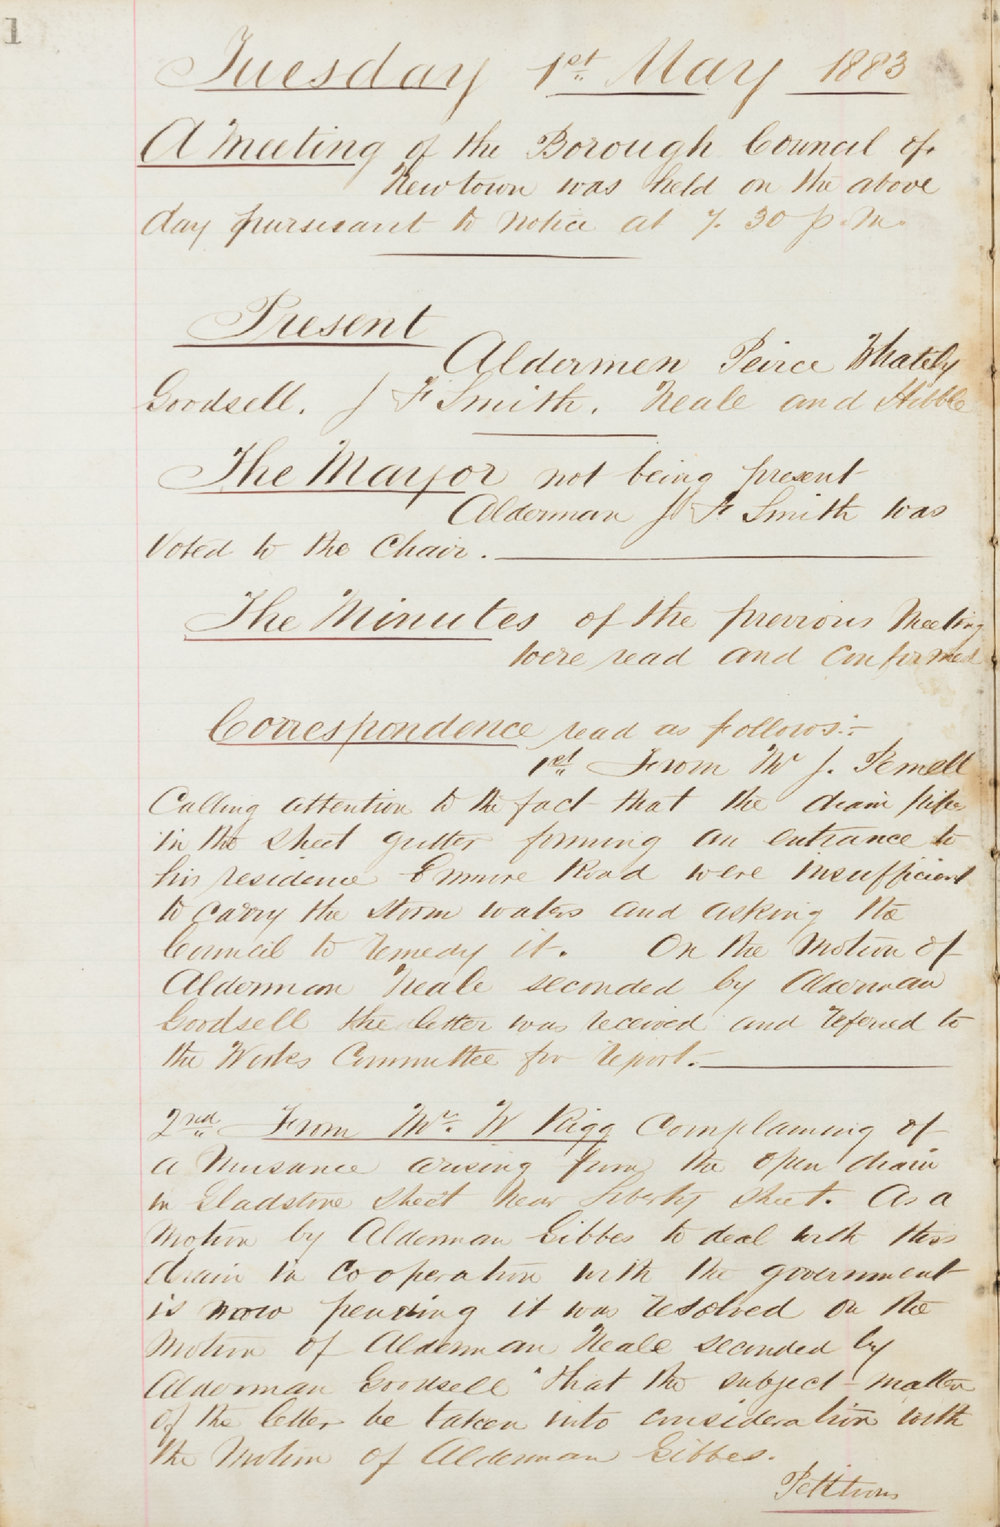 1
Tuesday 1st May 1883
A Meeting of the Borough Council of
Newtown was held on the above
day pursuant to notice at 7.30 p.m.
Present
Aldermen Peirce Whately
Goodsell. J F Smith. Neale and Hibble
The Mayor not being present
Alderman J F Smith was
Voted to the Chair.
The Minutes of the previous Meeting
were read and confirmed
Correspondence read as follows:-
1st From Mr J. Pemell
Calling attention to the fact that the drain pipes
in the street gutter forming an entrance to
his residence Enmore Road were insufficient
to carry the storm waters and asking the
Council to remedy it. On the Motion of
Alderman Neale seconded by Alderman
Goodsell the letter was received and referred to
the Works Committee for report.
2nd From Mr. W Rigg Complaining of
a Nuisance arising from the open drain
in Gladstone street near Liberty street. As a
motion by Alderman Gibbes to deal with this
drain in Cooperation with the government
is now pending it was resolved on the
motion of Alderman Neale seconded by
Alderman Goodsell "that the subject-matter
of the letter be taken into consideration with
the Motion of Alderman Gibbes.
Petitions